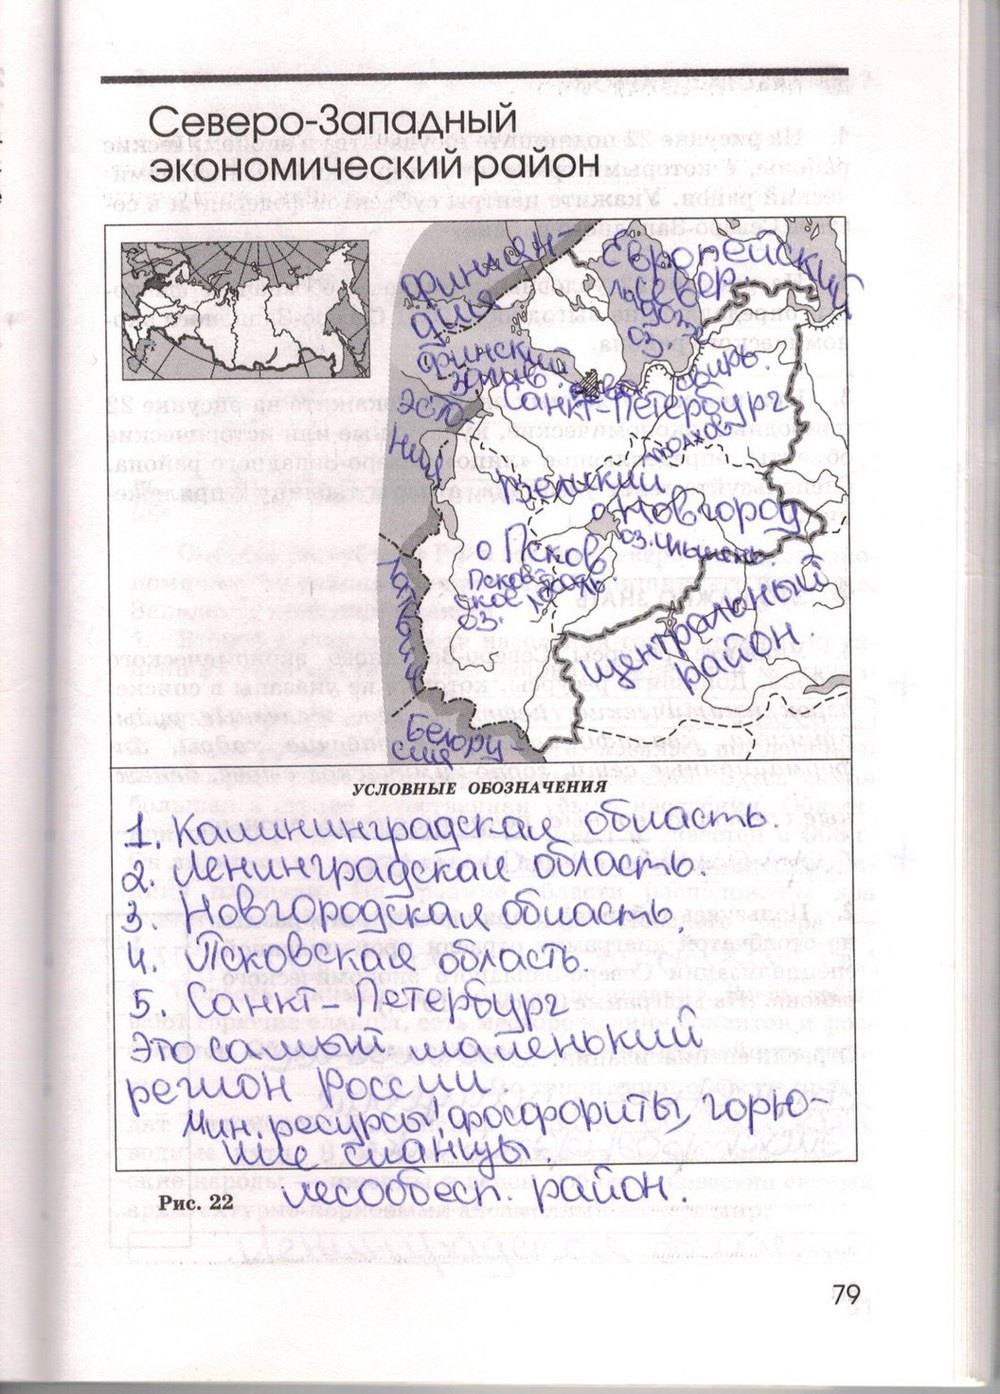 Северо-Западный
экономический район
Финлян
дия
Европейский
север
Ладож
оз
Финский
залив.
Нева
Свирь.
Эсто
ния
Санкт-Петербург
Волхов
Великий
о Новгород
оз. Ильмень.
о Псков
Псков
ское
оз.
Ловать
Латвия
Центральный
район.
Белорус
сия
УСЛОВНЫЕ ОБОЗНАЧЕНИЯ
1. Калининградская область.
2. Ленинградская область.
3. Новгородская область,
4. Псковская область
5. Санкт-Петербург
Это самый маленький
регион России.
Мин. ресурсы: фосфориты, горю-
чие сланцы.
Рис. 22
лесообесп. район.
79